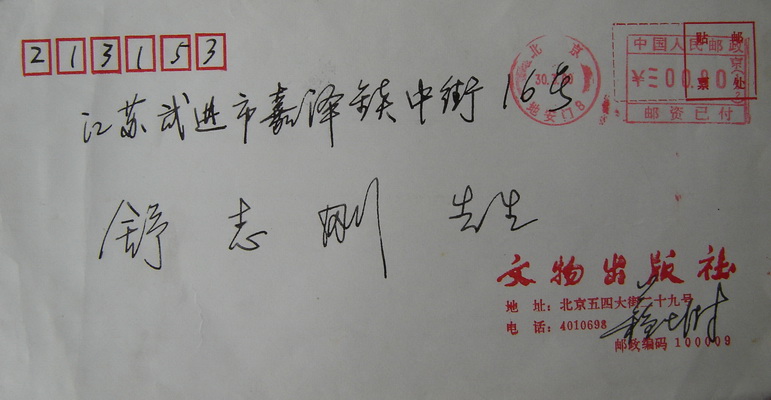 213153
贴 邮
票 处
北京
30.
地安门8
中国人民邮政
¥三00.00
邮资已付
江苏武进市嘉泽镇中街16号
舒志刚 先生
文物出版社
地 址:北京五四大街二十九号
电 话:4010698
邮政编码 100009